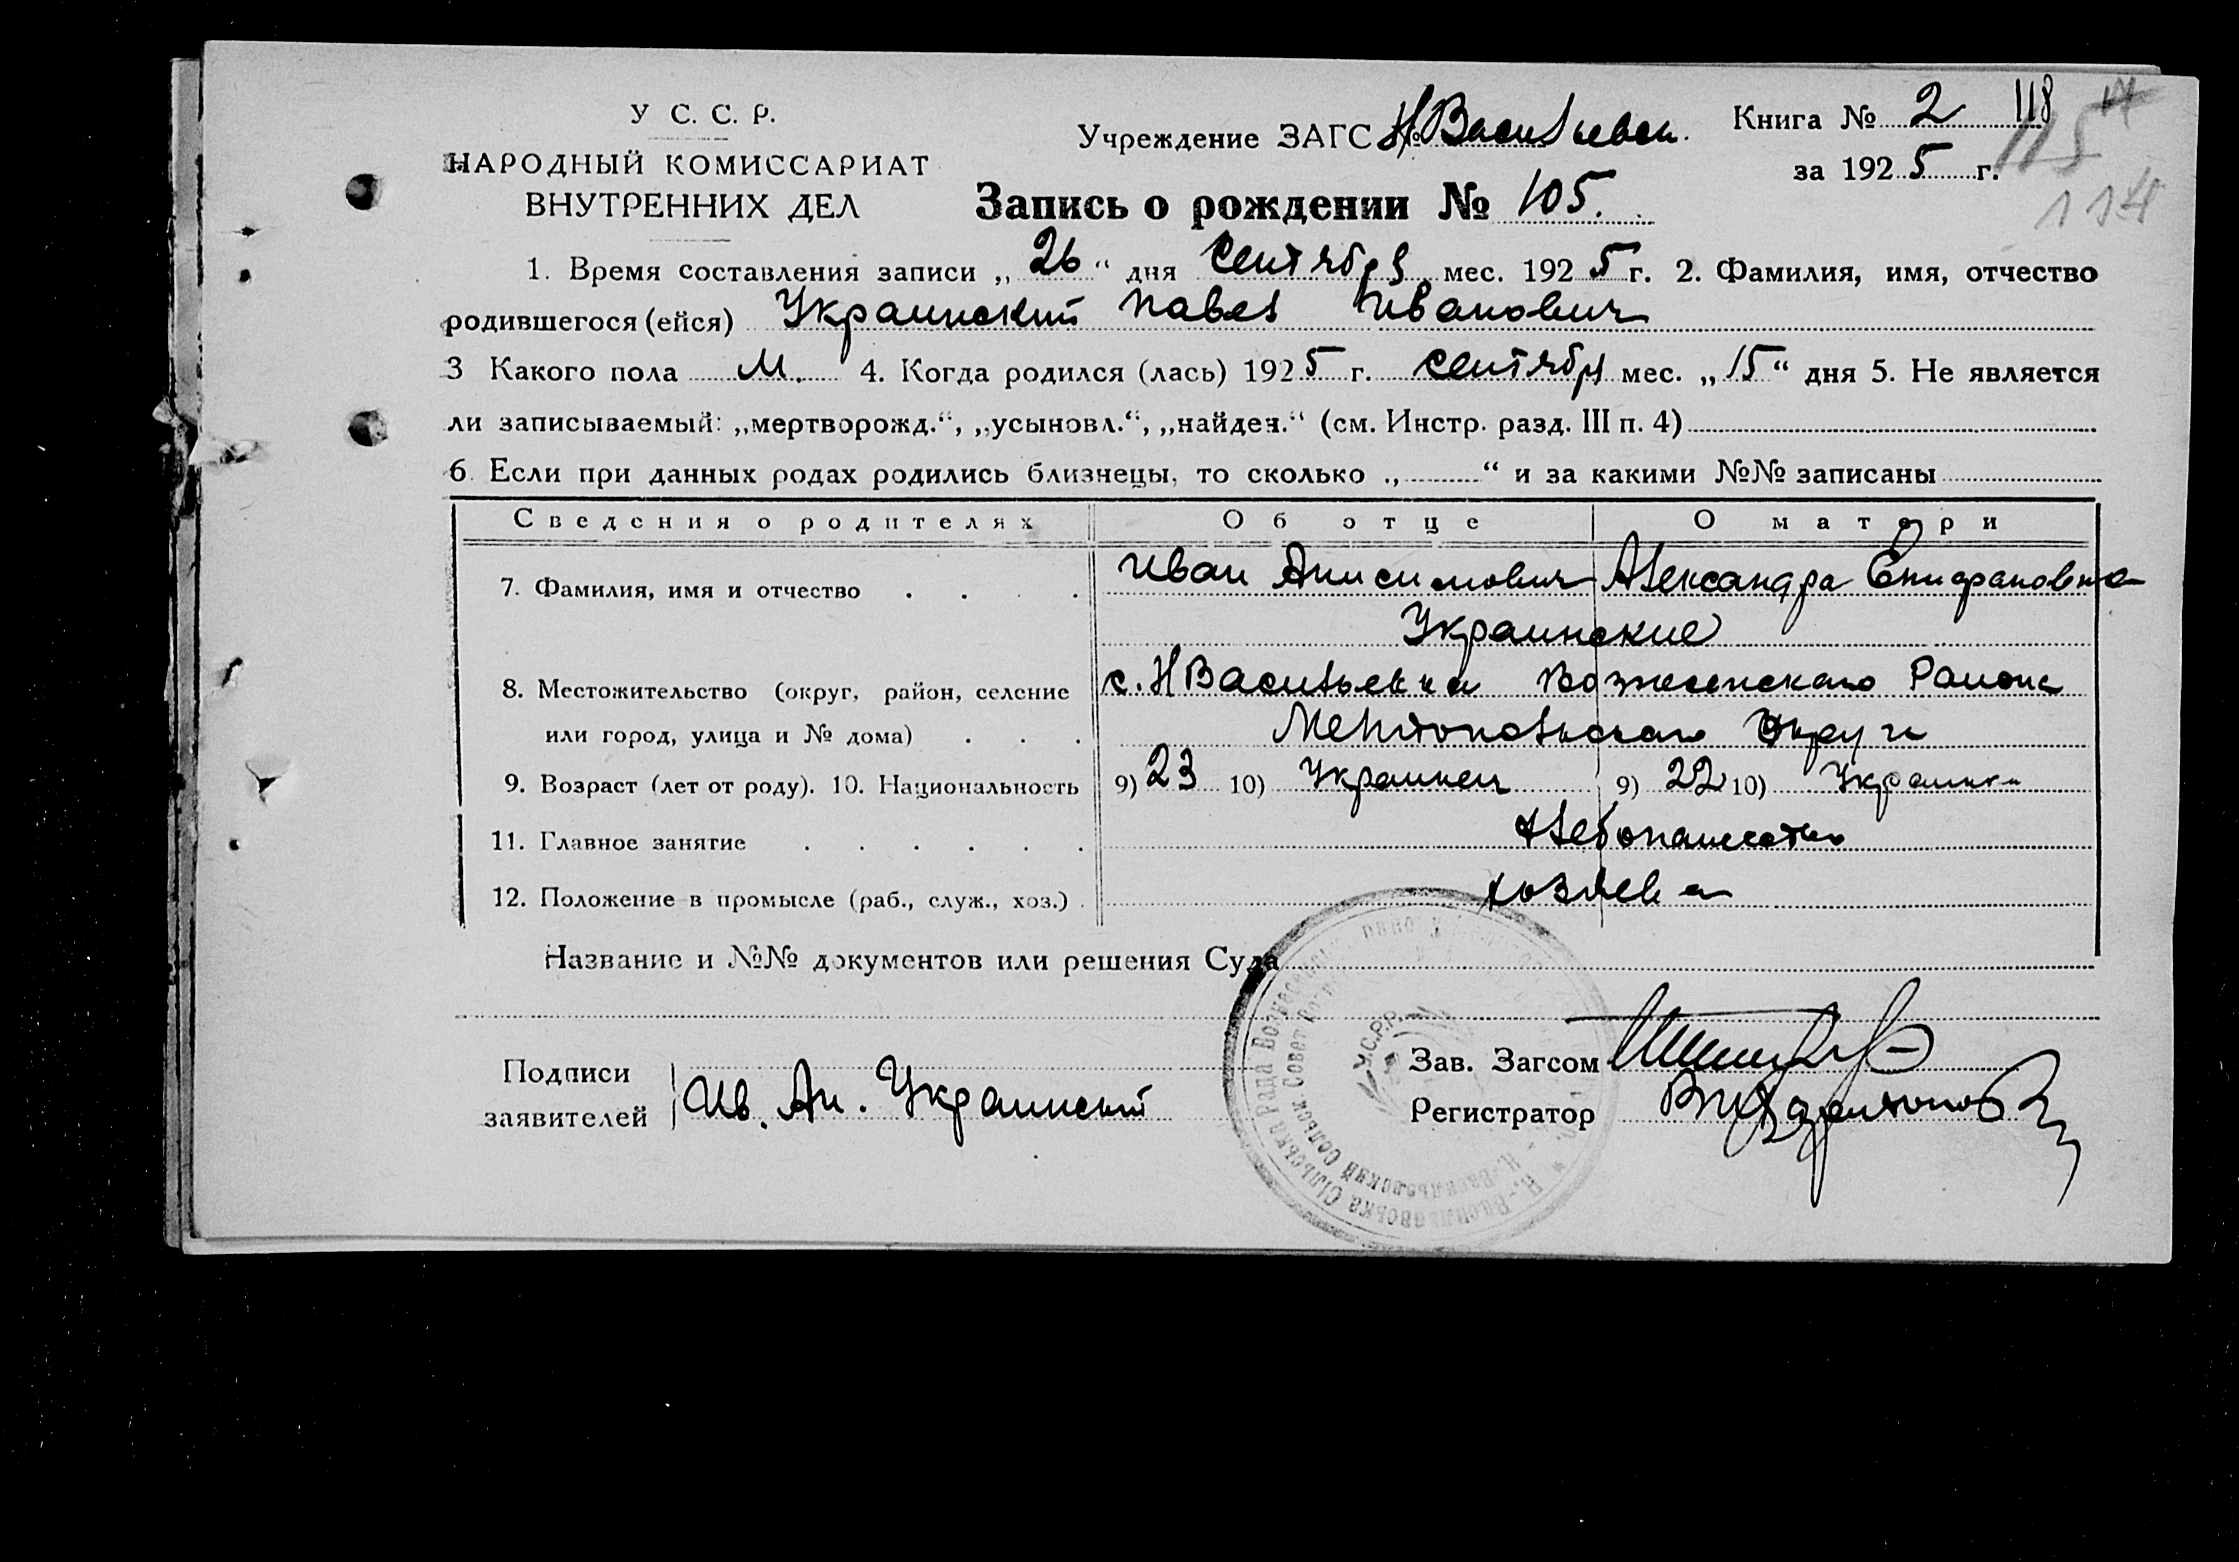 У С. С. Р.
НАРОДНЫЙ КОМИССАРИАТ
ВНУТРЕННИХ ДЕЛ
Учреждение ЗАГС № Н Васильевск.
Книга № 2 118
115
за 1925 г.
114
Запись о рождении № 105.
1. Время составления записи „26“ дня Сентября мес. 1925 г. 2. Фамилия, имя, отчество
родившегося (ейся) Украинский Павел Иванович
3 Какого пола М. 4. Когда родился (лась) 1925 г. Сентябр мес. „15“ дня 5. Не является
ли записываемый: „мертворожд.“, „усыновл.“, „найден.“ (см. Инстр. разд. III п. 4)
6. Если при данных родах родились близнецы, то сколько „ “ и за какими №№ записаны
Сведения о родителях Об отце О матери
7. Фамилия, имя и отчество Иван Анисимович Александра Епифановна
Украинские
8. Местожительство (округ, район, селение с. Н Васильевка Вознесенскаго Района
или город, улица и № дома) Мелитопольскаго Округа
9. Возраст (лет от роду). 10. Национальность 9) 23 10) Украинец 9) 22 10) Украинка
11. Главное занятие хлебопашество
12. Положение в промысле (раб., служ., хоз.) хозяева
Название и №№ документов или решения Суда
Подписи
заявителей Ив. Ан. Украинский
Зав. Загсом
Регистратор
У.С.Р.Р.
Н.-Васильевська Сільська Рада
Н.-Васильевский Сельск Совет